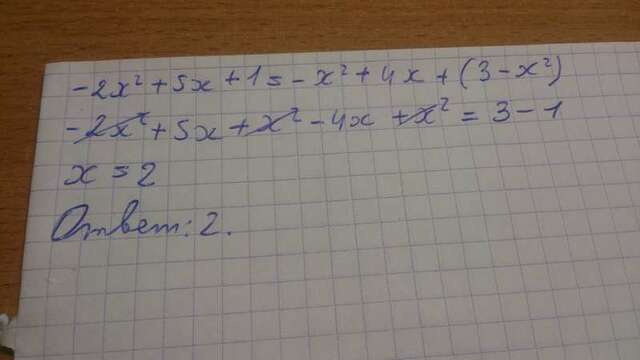 -2x² + 5x + 1 = -x² + 4x + (3 - x²)
-2x² + 5x + x² - 4x + x² = 3 - 1
x = 2
Ответ: 2.